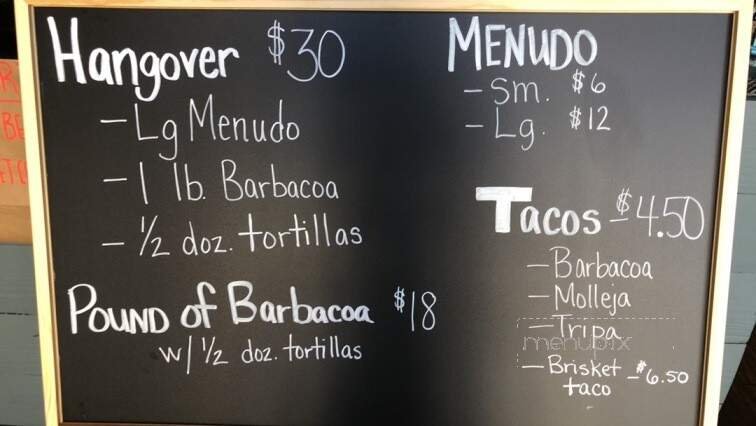 Hangover $30
- Lg Menudo
- 1 lb. Barbacoa
- ½ doz. tortillas
Pound of Barbacoa $18
w/ ½ doz. tortillas
MENUDO
- Sm. $6
- Lg. $12
Tacos - $4.50
- Barbacoa
- Molleja
- Tripa
menupix
- Brisket taco - $6.50